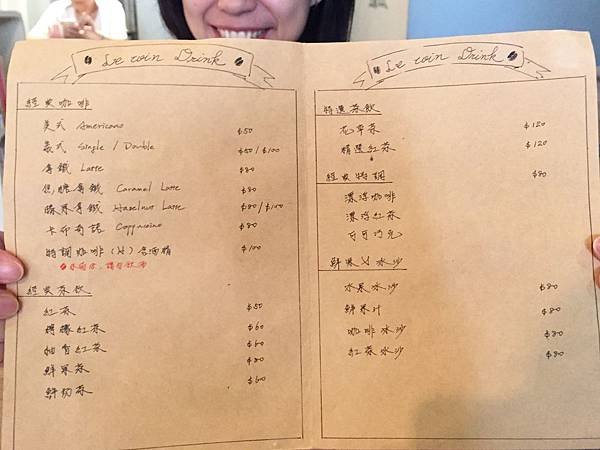 Le coin Drink
經典咖啡
美式 Americano $50
義式 Single / Double $50 / $100
拿鐵 Latte $80
焦糖拿鐵 Caramel Latte $80
榛果拿鐵 Hazelnut Latte $80 / $100
卡布奇諾 Cappuccino $80
特調咖啡 (冰) 含酒精 $100
經典茶飲
紅茶 $50
檸檬紅茶 $60
柚香紅茶 $60
鮮果茶 $80
鮮奶茶 $60
Le coin Drink
特選茶飲
花草茶 $120
精選紅茶 $120
經典特調 $80
漂浮咖啡
漂浮紅茶
可可巧克
鮮果 X 冰沙
水果冰沙 $80
鮮果汁 $80
咖啡冰沙 $80
紅茶冰沙 $80